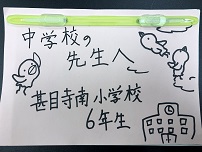 中学校の
先生へ
甚目寺南小学校
6年生